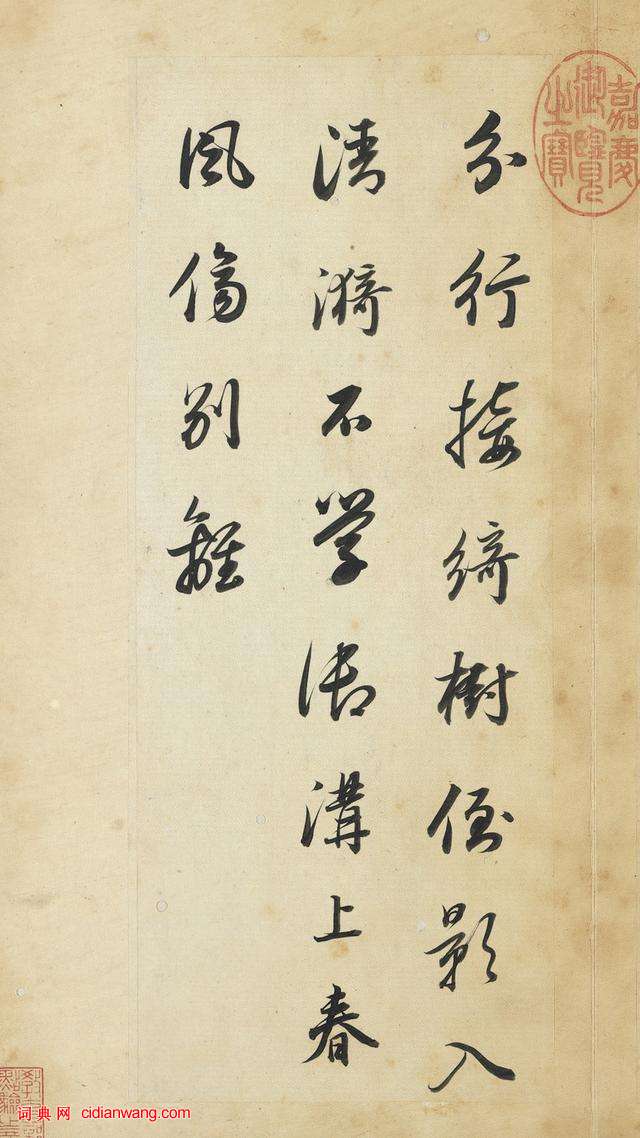 分行接绮樹倒影入
清漪不学御溝上春
風傷别離
嘉慶
御覽
之寶
词典网 cidianwang.com